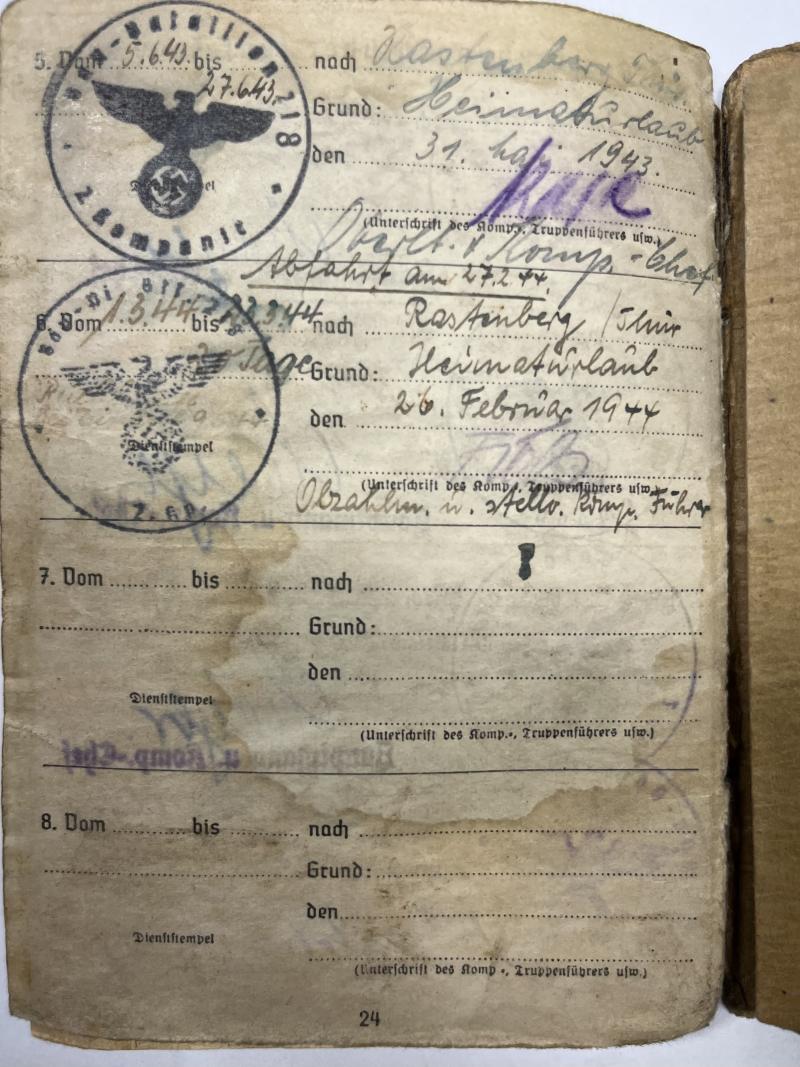 Bau-Bataillon 218
2. Kompanie
5. Vom 5.6.43. bis 27.6.43. nach Rastenberg Thür.
Grund: Heimaturlaub
den 31. Mai 1943.
Dienststempel
(Unterschrift des Komp.-, Truppenführers usw.)
Oberlt. u. Komp.-Chef
Abfahrt am 27.2.44.
6. Vom 1.3.44 bis 22.3.44 nach Rastenberg /Thür
Tage Grund: Heimaturlaub
den 26. Februar 1944
Dienststempel
2. Kp.
(Unterschrift des Komp.-, Truppenführers usw.)
Obzahlm. u. stellv. Komp. Führer
7. Vom bis nach
Grund:
den
Dienststempel
(Unterschrift des Komp.-, Truppenführers usw.)
8. Vom bis nach
Grund:
den
Dienststempel
(Unterschrift des Komp.-, Truppenführers usw.)
24